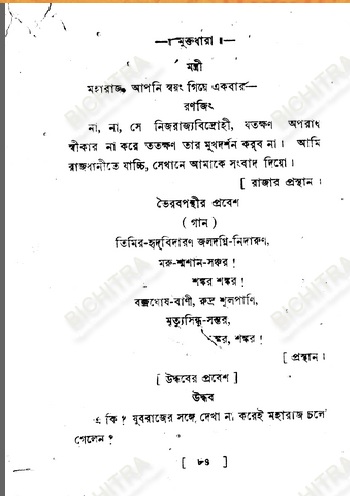 —। মুক্তধারা ।—
মন্ত্রী
মহারাজ, আপনি স্বয়ং গিয়ে একবার—
রণজিৎ
না, না, সে নিজরাজ্যবিদ্রোহী, যতক্ষণ অপরাধ
স্বীকার না করে ততক্ষণ তার মুখদর্শন করব না। আমি
রাজধানীতে যাচ্চি, সেখানে আমাকে সংবাদ দিয়ো।
[ রাজার প্রস্থান।
ভৈরবপন্থীর প্রবেশ
( গান )
তিমির-হৃদ্‌বিদারণ জলদগ্নি-নিদারুণ,
মরু-শ্মশান-সঞ্চর!
শঙ্কর শঙ্কর!
বজ্রঘোষ-বাণী, রুদ্র শূলপাণি,
মৃত্যুসিন্ধু-সন্তর,
ঙ্কর, শঙ্কর!
[ প্রস্থান।
[ উদ্ধবের প্রবেশ ]
উদ্ধব
এ কি? যুবরাজের সঙ্গে দেখা না করেই মহারাজ চলে
গেলেন?
[ ৮৪ ]
BICHITRA